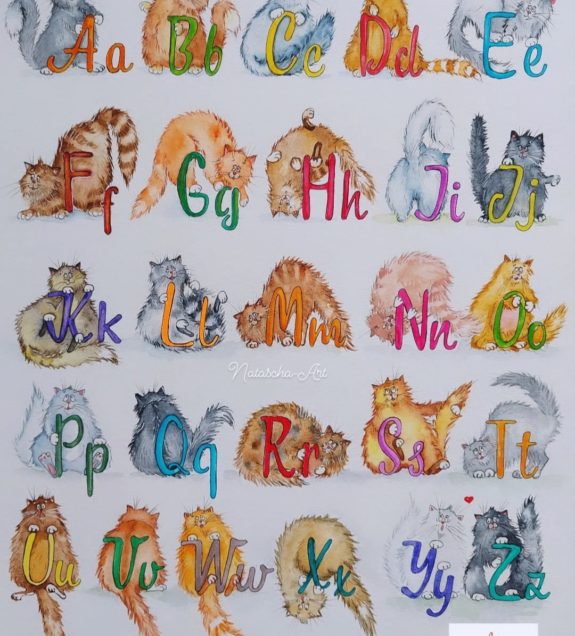 Aa Bb Cc Dd Ee
Ff Gg Hh Ii Jj
Kk Ll Mm Nn Oo
Natascha-Art
Pp Qq Rr Ss Tt
Uu Vv Ww Xx Yy Zz